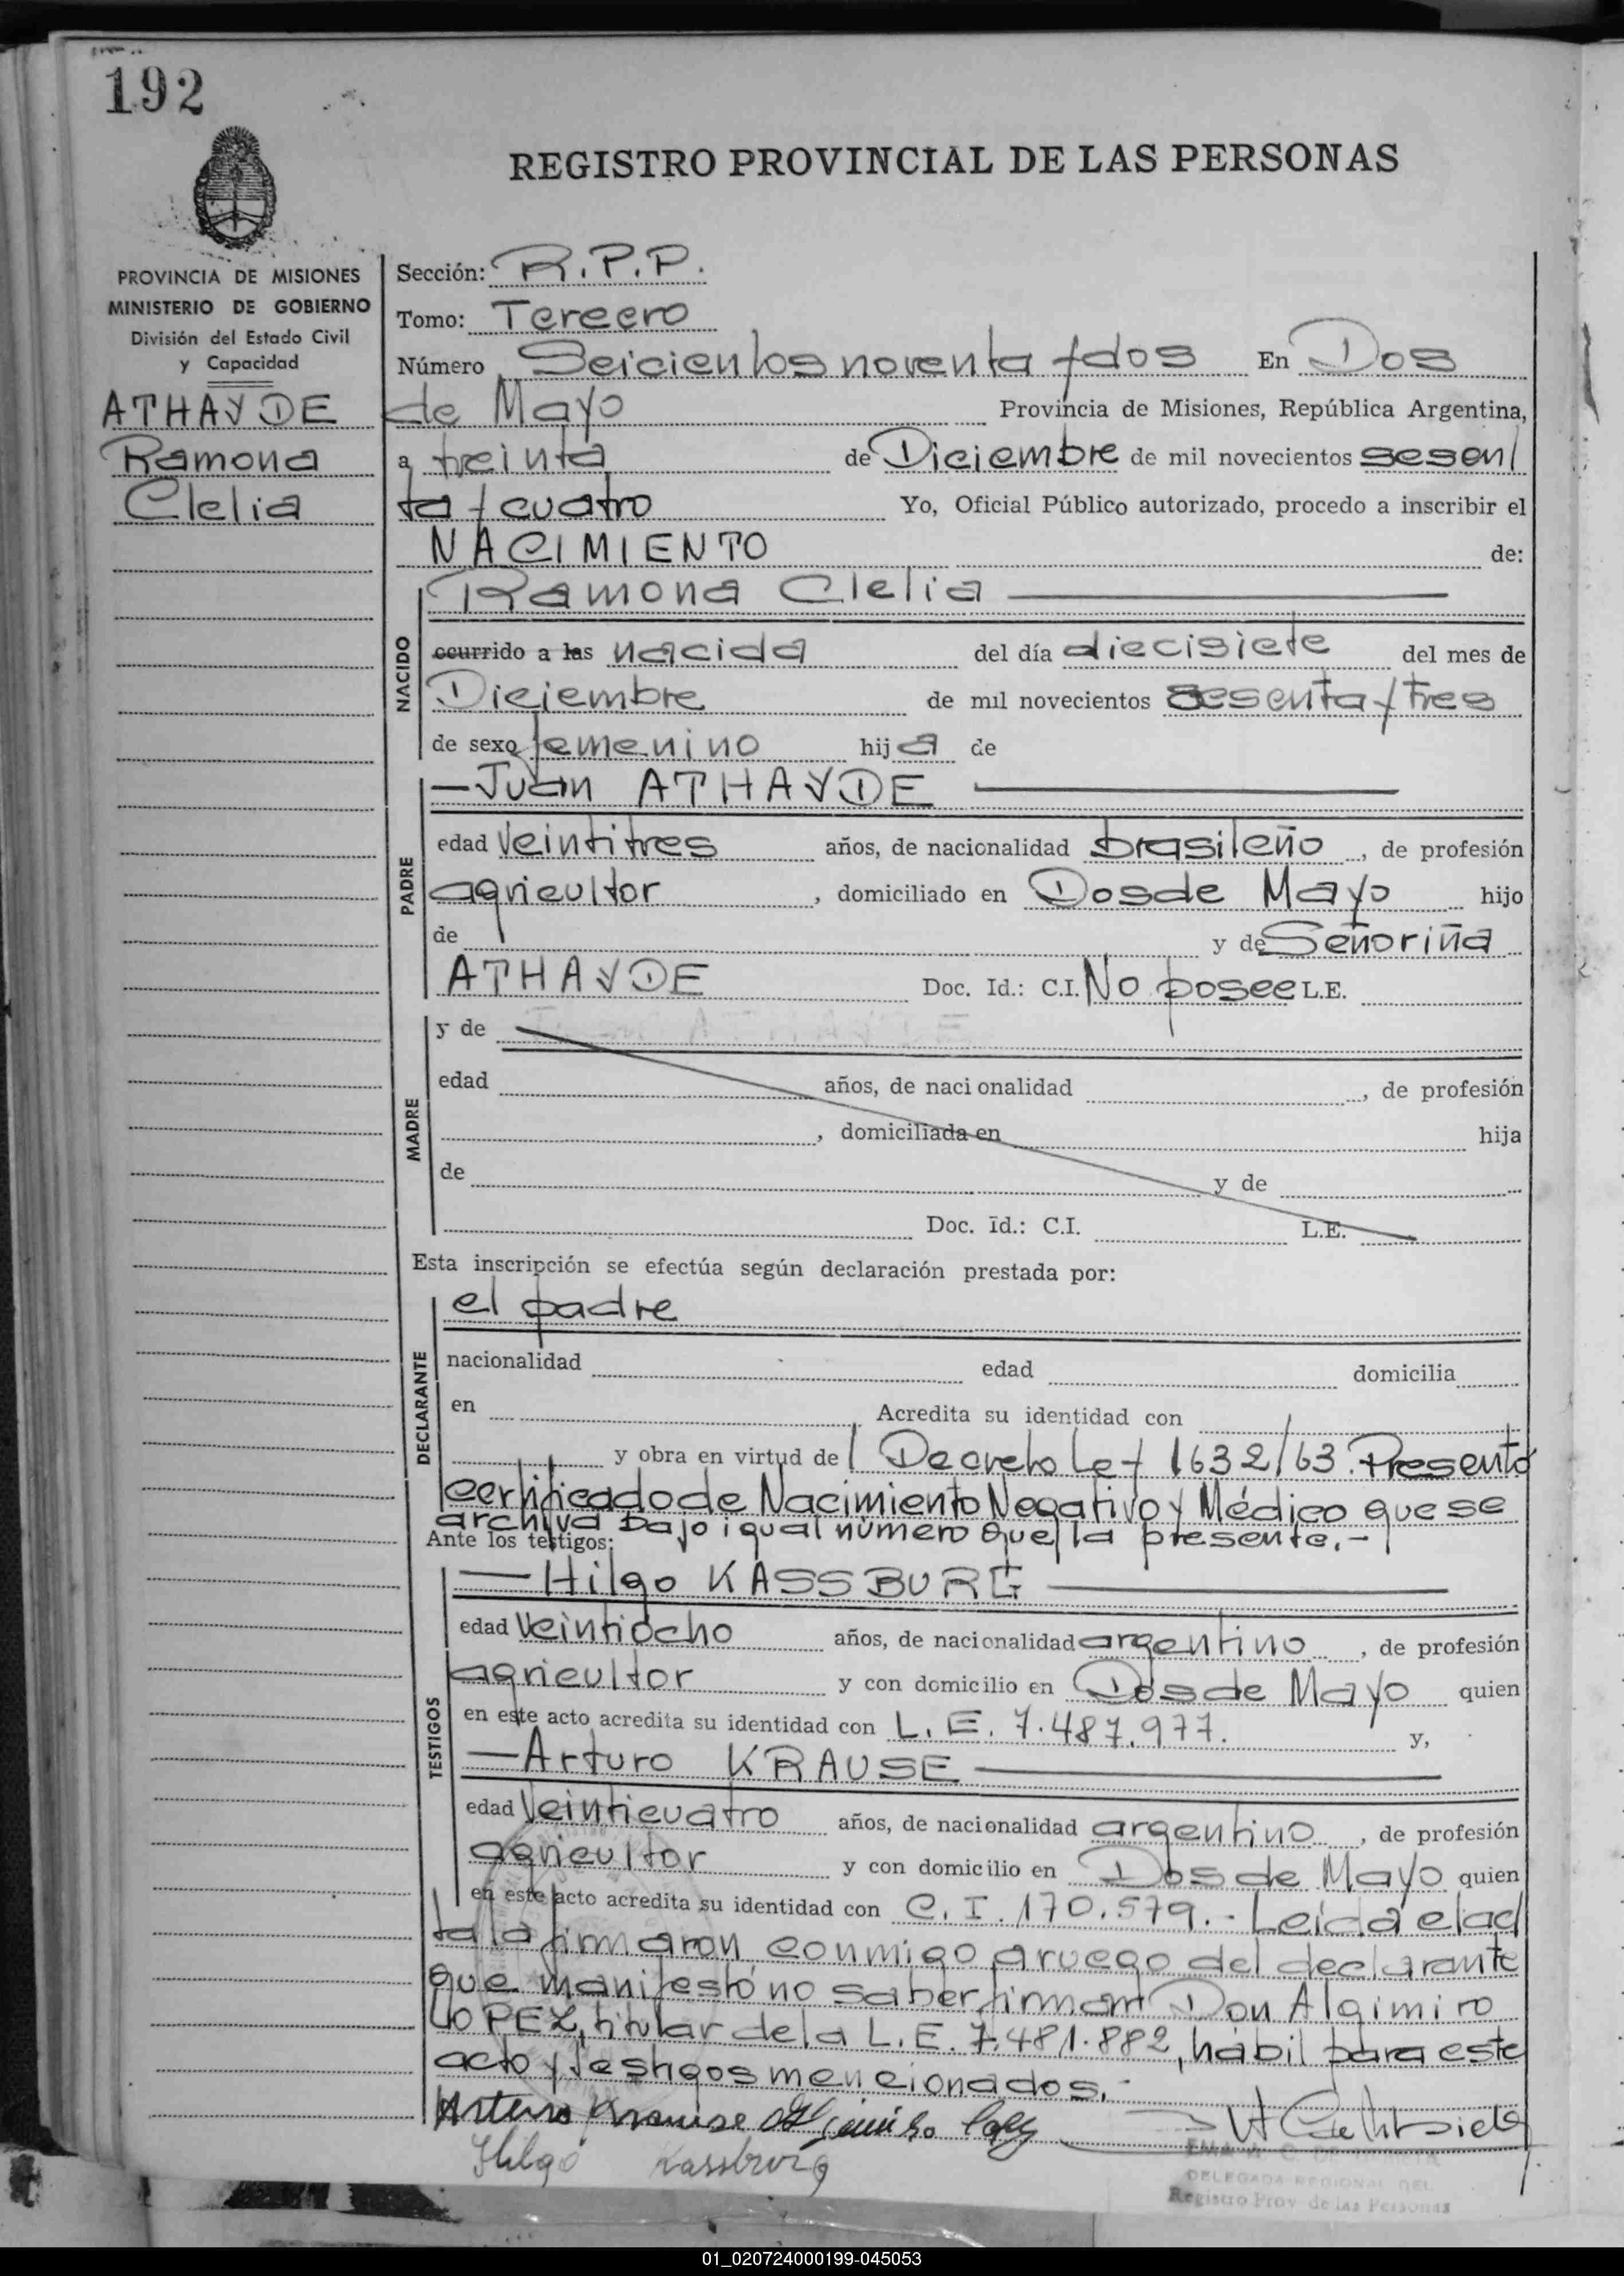 192
REGISTRO PROVINCIAL DE LAS PERSONAS
PROVINCIA DE MISIONES
MINISTERIO DE GOBIERNO
División del Estado Civil
y Capacidad
ATHAYDE
Ramona
Clelia
Sección: R.P.P.
Tomo: Tercero
Número Seicientos noventa y dos En Dos
de Mayo Provincia de Misiones, República Argentina,
a treinta de Diciembre de mil novecientos sesen/
ta y cuatro Yo, Oficial Público autorizado, procedo a inscribir el
NACIMIENTO de:
NACIDO
Ramona Clelia
ocurrido a las nacida del día diecisiete del mes de
Diciembre de mil novecientos sesenta y tres
de sexo femenino hija de
PADRE
—Juan ATHAYDE
edad veintitres años, de nacionalidad brasileño, de profesión
agricultor, domiciliado en Dos de Mayo hijo
de y de Señoriña
ATHAYDE Doc. Id.: C.I. No posee L.E.
MADRE
y de
edad años, de nacionalidad , de profesión
, domiciliada en hija
de y de
Doc. Id.: C.I. L.E.
Esta inscripción se efectúa según declaración prestada por:
DECLARANTE
el padre
nacionalidad edad domicilia
en Acredita su identidad con
y obra en virtud del Decreto Ley 1632/63. Presentó
certificado de Nacimiento Negativo y Médico que se
archiva bajo igual número que la presente.-
Ante los testigos:
TESTIGOS
—Hilgo KASSBURG
edad veintiocho años, de nacionalidad argentino, de profesión
agricultor y con domicilio en Dos de Mayo quien
en este acto acredita su identidad con L.E. 7.487.977. y,
—Arturo KRAUSE
edad veinticuatro años, de nacionalidad argentino, de profesión
agricultor y con domicilio en Dos de Mayo quien
en este acto acredita su identidad con C.I. 170.579.- Leida el ac/
ta la firmaron conmigo a ruego del declarante
que manifestó no saber firmar Don Algimiro
LOPEZ, titular de la L.E. 7.481.882, hábil para este
acto y testigos mencionados.-
Arturo Krause
Hilgo Kassburg
DELEGADA REGIONAL DEL
Registro Prov. de las Personas
01_020724000199-045053